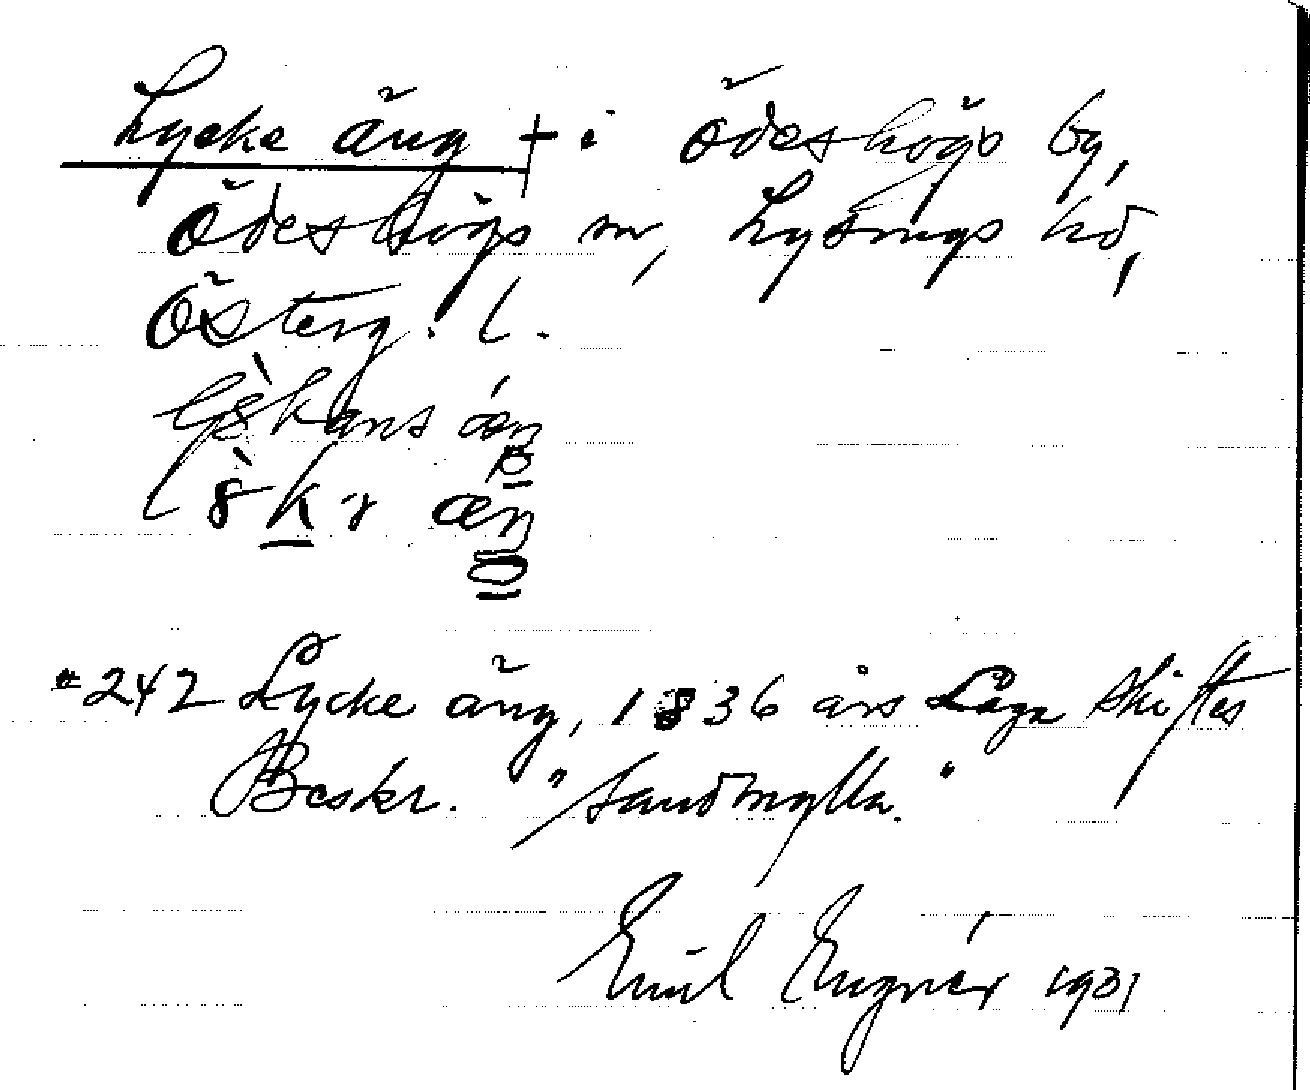 Lycke äng † i Ödeshögs by,
Ödeshögs sn, Lysings hd,
Österg. l.
æŋ
æŋ
#242 Lycke äng, 1836 års Laga Skiftes
Beskr. "Sandmylla."
Emil Engnér 1931